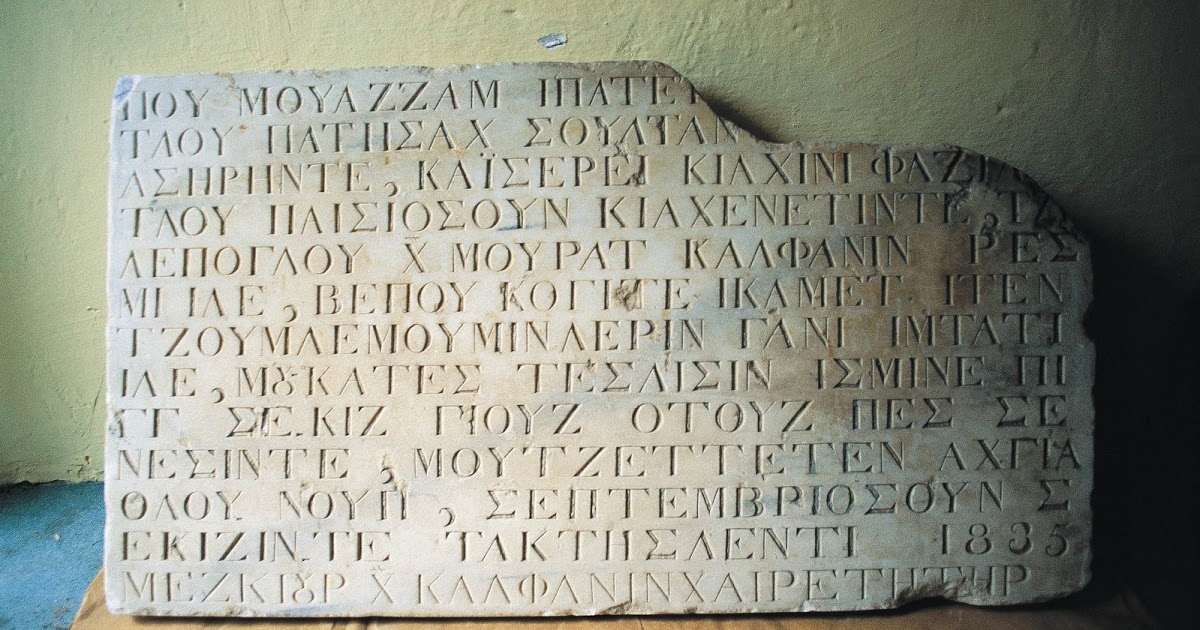 ΠΟΥ ΜΟΥΑΖΖΑΜ ΙΠΑΤΕΤ
ΤΛΟΥ ΠΑΤΗΣΑΧ ΣΟΥΛΤΑΝ
ΑΣΗΡΗΝΤΕ, ΚΑΪΣΕΡΕΙ ΚΙΑΧΙΝΙ ΦΑΖΙΛ
ΤΛΟΥ ΠΑΙΣΙΟΣΟΥΝ ΚΙΑΧΕΝΕΤΙΝΤΕ,
ΛΕΠΟΓΛΟΥ Χ̄ ΜΟΥΡΑΤ ΚΑΛΦΑΝΙΝ ΡΕΣ
ΜΙ ΙΛΕ, ΒΕΠΟΥ ΚΟΓΙΤΕ ΙΚΑΜΕΤ ΙΤΕΝ
ΤΖΟΥΜΛΕΜΟΥΜΙΝΛΕΡΙΝ ΓΑΝΙ ΙΜΤΑΤΙ
ΙΛΕ, ΜȢΚΑΤΕΣ ΤΕΣΛΙΣΙΝ ΙΣΜΙΝΕ ΠΙ
ΥΓ ΣΕΚΙΖ ΓΙΟΥΖ ΟΤΟΥΖ ΠΕΣ ΣΕ
ΝΕΣΙΝΤΕ, ΜΟΥΤΖΕΤΤΕΤΕΝ ΑΧΓΙΑ
ΟΛΟΥ ΝΟΥΠ, ΣΕΠΤΕΜΒΡΙΟΣΟΥΝ Σ
ΕΚΙΖΙΝΤΕ ΤΑΚΤΗΣΛΕΝΤΙ 1835
ΜΕΖΚΙȢΡ Χ̄ ΚΑΛΦΑΝΙΝΧΑΙΡΕΤΗΤΗΡ